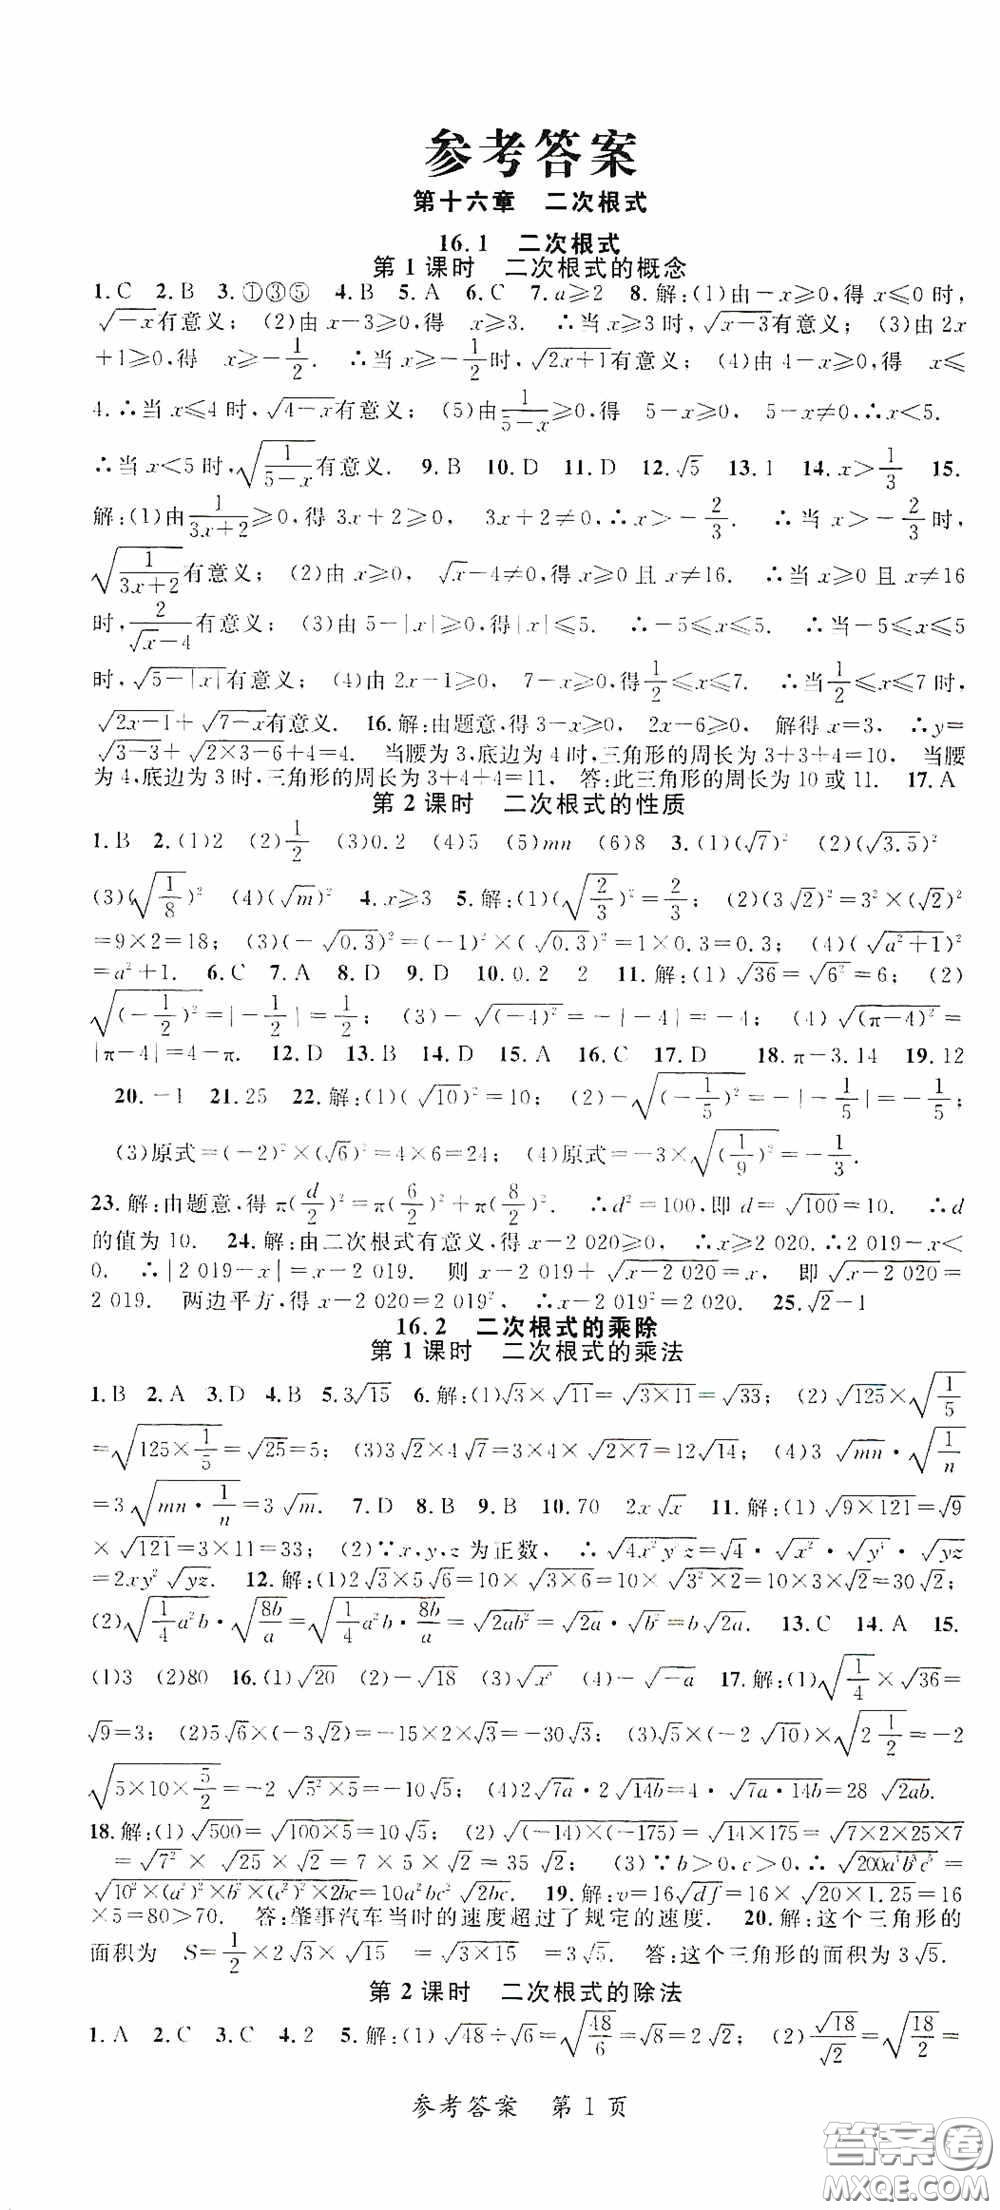 参考答案
第十六章　二次根式
16.1　二次根式
第1课时　二次根式的概念
1.C　2.B　3.①③⑤　4.B　5.A　6.C　7.a≥2　8.解:(1)由－x≥0,得 x≤0时,
√(－x)有意义;　(2)由 x－3≥0,得　x≥3.　∴当 x≥3时,√(x－3)有意义;　(3)由2x
＋1≥0,得　x≥－1/2.　∴当 x≥－1/2时,√(2x＋1)有意义;　(4)由4－x≥0,得　x≤
4.∴当 x≤4时,√(4－x)有意义;　(5)由1/(5－x)≥0,得　5－x≥0,　5－x≠0,∴x＜5.
∴当 x＜5时,√(1/(5－x))有意义.　9.B　10.D　11.D　12.√5　13.1　14.x＞1/3　15.
解:(1)由1/(3x＋2)≥0,得 3x＋2≥0,　3x＋2≠0,∴x＞－2/3.　∴当 x＞－2/3时,
√(1/(3x＋2))有意义;　(2)由 x≥0,　√x－4≠0,得 x≥0且 x≠16.　∴当 x≥0且 x≠16
时,2/(√x－4)有意义;　(3)由5－|x|≥0,得|x|≤5.　∴－5≤x≤5.　∴当－5≤x≤5
时,√(5－|x|)有意义;　(4)由2x－1≥0,　7－x≥0,得1/2≤x≤7.　∴当1/2≤x≤7时,
√(2x－1)＋√(7－x)有意义.　16.解:由题意,得3－x≥0,　2x－6≥0,　解得 x＝3,　∴y＝
√(3－3)＋√(2×3－6)＋4＝4.　当腰为3,底边为4时,三角形的周长为3＋3＋4＝10,　当腰
为4,底边为3时,三角形的周长为3＋4＋4＝11,　答:此三角形的周长为10或11.　17.A
第2课时　二次根式的性质
1.B　2.(1)2　(2)1/2　(3)0.2　(4)5　(5)mn　(6)8　3.(1)(√7)²　(2)(√3.5)²
(3)(√(1/8))²　(4)(√m)²　4.x≥3　5.解:(1)(√(2/3))²＝2/3;　(2)(3√2)²＝3²×(√2)²
＝9×2＝18;　(3)(－√0.3)²＝(－1)²×(√0.3)²＝1×0.3＝0.3;　(4)(√(a²＋1))²
＝a²＋1.　6.C　7.A　8.D　9.D　10.0.2　2　11.解:(1)√36＝√6²＝6;　(2)
√((－1/2)²)＝|－1/2|＝1/2;　(3)－√((－4)²)＝－|－4|＝－4;　(4)√((π－4)²)＝
|π－4|＝4－π.　12.D　13.B　14.D　15.A　16.C　17.D　18.π－3.14　19.12
20.－1　21.25　22.解:(1)(√10)²＝10;　(2)－√((－1/5)²)＝－|－1/5|＝－1/5;
(3)原式＝(－2)²×(√6)²＝4×6＝24;　(4)原式＝－3×√((1/9)²)＝－1/3.
23.解:由题意,得 π(d/2)²＝π(6/2)²＋π(8/2)².　∴d²＝100,即 d＝√100＝10.　∴d
的值为10.　24.解:由二次根式有意义,得 x－2 020≥0,　∴x≥2 020.∴2 019－x＜
0.　∴|2 019－x|＝x－2 019.　则 x－2 019＋√(x－2 020)＝x,　即√(x－2 020)＝
2 019.　两边平方,得 x－2 020＝2 019²,　∴x－2 019²＝2 020.　25.√2－1
16.2　二次根式的乘除
第1课时　二次根式的乘法
1.B　2.A　3.D　4.B　5.3√15　6.解:(1)√3×√11＝√(3×11)＝√33;　(2)√125×√(1/5)
＝√(125×1/5)＝√25＝5;　(3)3√2×4√7＝3×4×√(2×7)＝12√14;　(4)3√mn·√(1/n)
＝3√(mn·1/n)＝3√m.　7.D　8.B　9.B　10.70　2x√x　11.解:(1)√(9×121)＝√9
×√121＝3×11＝33;　(2)∵x,y,z为正数,　∴√(4x²y⁴·yz)＝√4·√x²·√y⁴·√yz
＝2xy²√yz.　12.解:(1)2√3×5√6＝10×√(3×6)＝10×√(3²×2)＝10×3×√2＝30√2;
(2)√(1/4 a²b)·√(8b/a)＝√(1/4 a²b·8b/a)＝√(2ab²)＝√2a·√b²＝b√2a.　13.C　14.A　15.
(1)3　(2)80　16.(1)√20　(2)－√18　(3)√x³　(4)－√(－a)　17.解:(1)√(1/4)×√36＝
√9＝3;　(2)5√6×(－3√2)＝－15×2×√3＝－30√3;　(3)√5×(－2√10)×√(2 1/2)＝－2
√(5×10×5/2)＝－2√(5²×5)＝;　(4)2√7a·2√14b＝4·√(7a·14b)＝28√2ab.
18.解:(1)√500＝√(100×5)＝10√5;　(2)√((－14)×(－175))＝√(14×175)＝√(7×2×25×7)
＝√7²×√25×√2＝7×5×√2＝35√2;　(3)∵b＞0,c＞0,∴√(200a⁴b³c⁵)＝
√(10²×(a²)²×b²×(c²)²×2bc)＝10a²bc²√2bc.　19.解:v＝16√df＝16×√(20×1.25)＝16
×5＝80＞70.　答:肇事汽车当时的速度超过了规定的速度.　20.解:这个三角形的
面积为　S＝1/2×2√3×√15　＝√(3×15)　＝3√5.　答:这个三角形的面积为3√5.
第2课时　二次根式的除法
1.A　2.C　3.C　4.2　5.解:(1)√48÷√6＝√(48/6)＝√8＝2√2;　(2)√18/√2＝√(18/2)＝
参考答案　第1页
答案卷
MXQE.COM